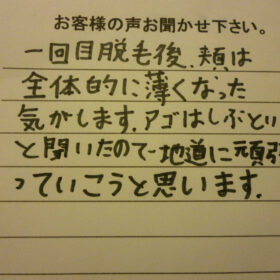 お客様の声お聞かせ下さい。
一回目脱毛後、頬は
全体的に薄くなった
気がします。アゴはしぶとい
と聞いたので地道に頑張
っていこうと思います。